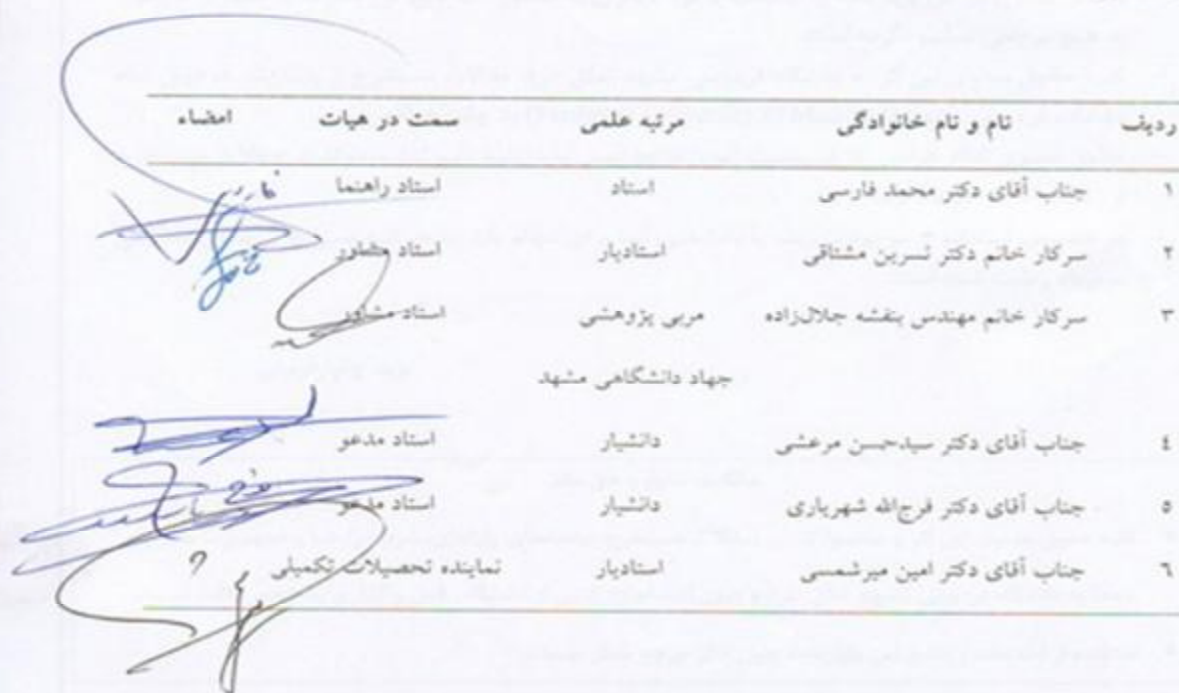 ردیف نام و نام خانوادگی مرتبه علمی سمت در هیات امضاء
۱ جناب آقای دکتر محمد فارسی استاد استاد راهنما
۲ سرکار خانم دکتر نسرین مشتاقی استادیار استاد مشاور
۳ سرکار خانم مهندس بنفشه جلال‌زاده مربی پژوهشی استاد مشاور
جهاد دانشگاهی مشهد
٤ جناب آقای دکتر سیدحسن مرعشی دانشیار استاد مدعو
٥ جناب آقای دکتر فرج‌الله شهریاری دانشیار استاد مدعو
٦ جناب آقای دکتر امین میرشمسی استادیار نماینده تحصیلات تکمیلی